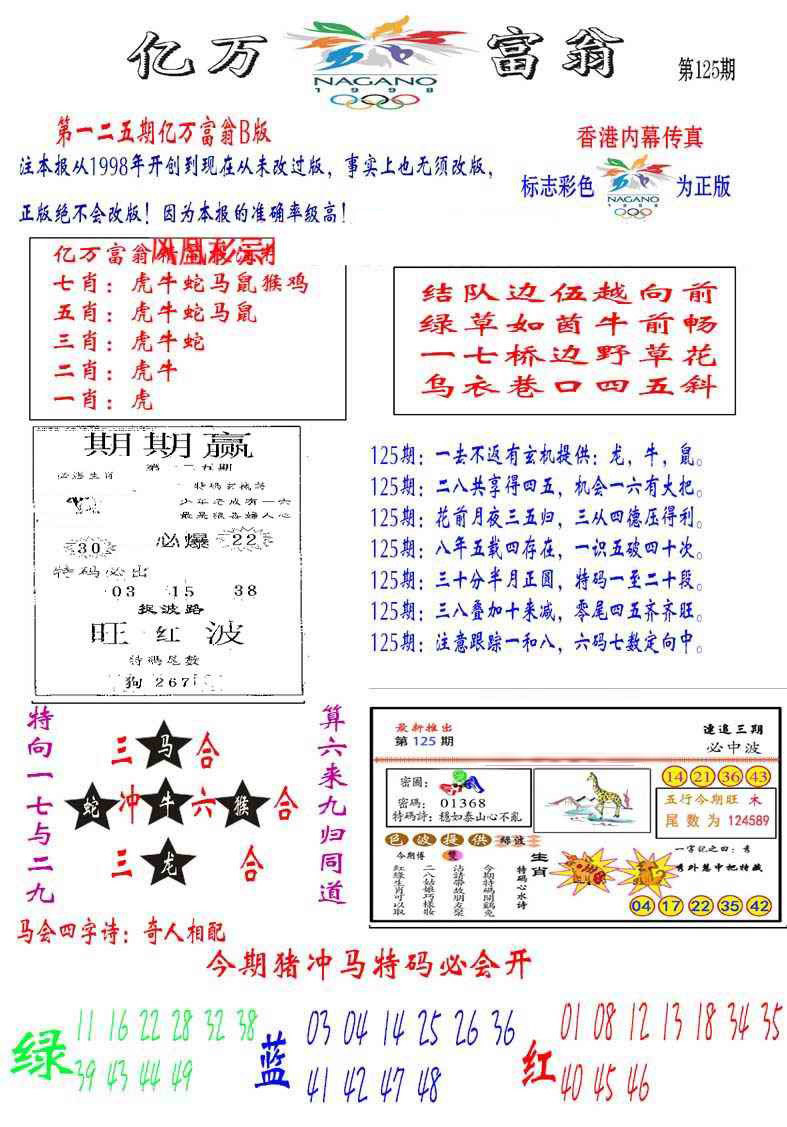 亿万
富翁
NAGANO
1998
第125期
第一二五期亿万富翁B版
香港内幕传真
注本报从1998年开创到现在从未改过版，事实上也无须改版，
标志彩色
NAGANO
1998
为正版
正版绝不会改版！因为本报的准确率级高！
亿万富翁
七肖：虎牛蛇马鼠猴鸡
五肖：虎牛蛇马鼠
三肖：虎牛蛇
二肖：虎牛
一肖：虎
结队边伍越向前
绿草如茵牛前畅
一七桥边野草花
乌衣巷口四五斜
期期赢
第一二五期
必爆
30
22
特码必出
03 15 38
捉波路
旺红波
特码尾数
狗267
125期：一去不返有玄机提供：龙，牛，鼠。
125期：二八共享得四五，机会一六有大把。
125期：花前月夜三五归，三从四德压得利。
125期：八年五载四存在，一识五破四十次。
125期：三十分半月正圆，特码一至二十段。
125期：三八叠加十来减，零尾四五齐齐旺。
125期：注意跟踪一和八，六码七数定向中。
特向一七与二九
三马合
蛇冲牛六猴合
三龙合
算六来九归同道
最新推出
第125期
速追三期
必中波
密圖：
密碼：01368
特码詩：穩如泰山心不亂
14 21 36 43
五行今期旺 木
尾数为 124589
色波提供 綠波
今期傳
生肖
特码心水诗
04 17 22 35 42
马会四字诗：奇人相配
今期猪冲马特码必会开
绿
11 16 22 28 32 38
39 43 44 49
蓝
03 04 14 25 26 36
41 42 47 48
红
01 08 12 13 18 34 35
40 45 46